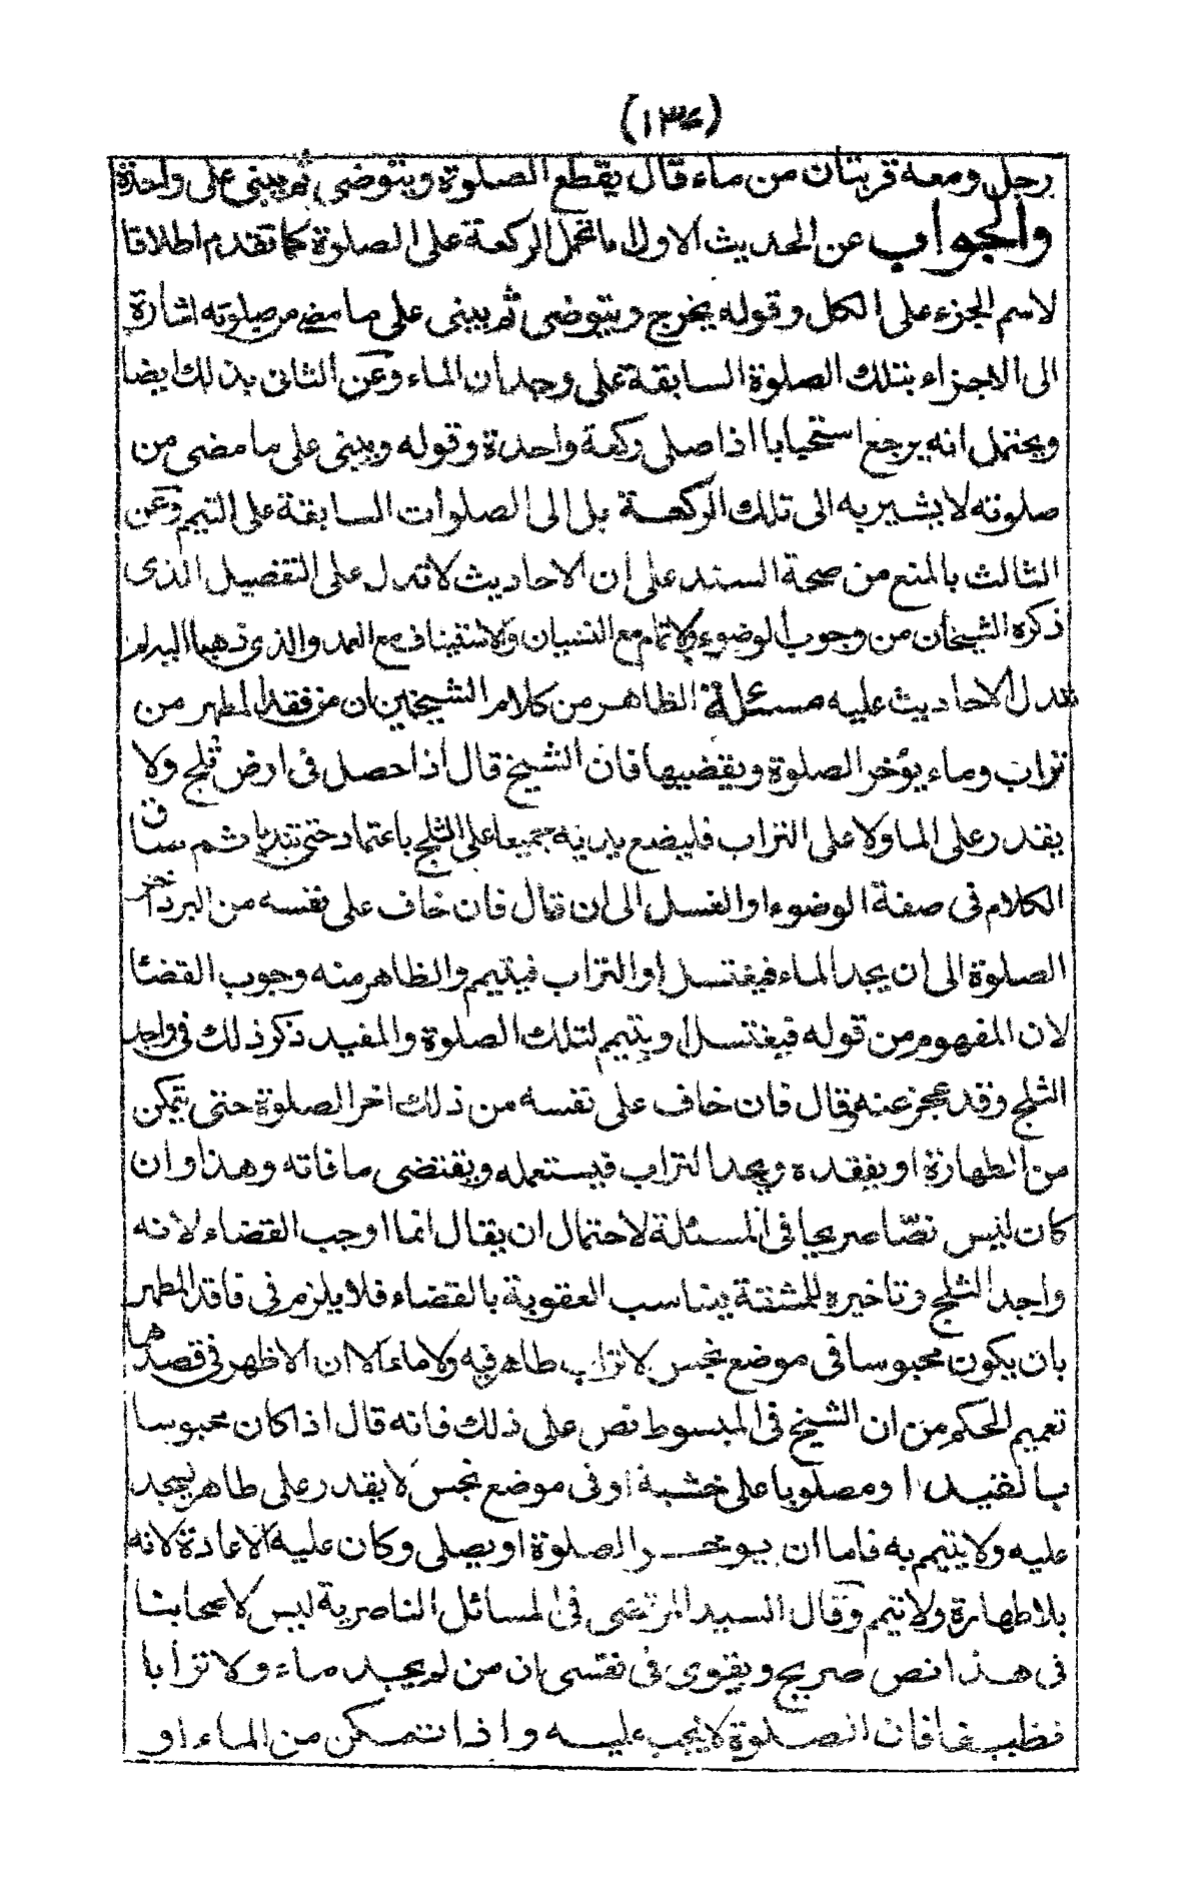 (١٣٤)
رجل ومعه قربتان من ماء قال يقطع الصلوة ويتوضى ثم يبنى على واحدة
والجواب عن الحديث الاول انا نحمل الركعة على الصلوة كما تقدم اطلاقا
لاسم الجزء على الكل وقوله يخرج ويتوضى ثم يبنى على ما مضى من صلوته اشارة
الى الاجزاء بتلك الصلوة السابقة على وجدان الماء وعن الثانى بذلك ايضا
ويحتمل انه يرجع استحبابا اذا صلى ركعة واحدة وقوله ويبنى على ما مضى من
صلوته لا يشير به الى تلك الركعة بل الى الصلوات السابقة على التيمم وعن
الثالث بالمنع من صحة السند على ان الاحاديث لا تدل على التفصيل الذى
ذكره الشيخان من وجوب الوضوء والاتمام مع النسيان والاستيناف مع العمد والذى ذهبا اليه لم
تدل الاحاديث عليه مسئلة الظاهر من كلام الشيخين ان من فقد المطهر من
تراب وماء يؤخر الصلوة ويقضيها فان الشيخ قال اذا حصل فى ارض ثلج ولا
يقدر على الماء ولا على التراب فليضع يديه جميعا على الثلج باعتماد حتى تنديا ثم ساق
الكلام فى صفة الوضوء او الغسل الى ان قال فان خاف على نفسه من البرد اخر
الصلوة الى ان يجد الماء فيغتسل او التراب فيتيمم والظاهر منه وجوب القضا
لان المفهوم من قوله فيغتسل او يتيمم لتلك الصلوة والمفيد ذكر ذلك فى واجد
الثلج وقد عجز عنه وقال فان خاف على نفسه من ذلك اخر الصلوة حتى يتمكن
من الطهارة او يفقده ويجد التراب فيستعمله ويقتضى ما فاته وهذا وان
كان ليس نصّا صريحا فى المسئلة لاحتمال ان يقال انما اوجب القضاء لانه
واجد الثلج وتاخيره للمشقة يناسب العقوبة بالقضاء فلا يلزم فى فاقد المطهر
بان يكون محبوسا فى موضع نجس لا تراب طاهر فيه ولا ماء الا ان الاظهر فى قصدهما
تعميم الحكم من ان الشيخ فى المبسوط نص على ذلك فانه قال اذا كان محبوسا
بالقيد او مصلوبا على خشبة او فى موضع نجس لا يقدر على طاهر يسجد
عليه ولا يتيمم به فاما ان يوخر الصلوة او يصلى وكان عليه الاعادة لانه
بلا طهارة ولا تيمم وقال السيد المرتضى فى المسائل الناصرية ليس لاصحابنا
فى هذا نص صريح ويقوى فى نفسى ان من لم يجد ماء ولا ترابا
نظيفا فان الصلوة لا يجب عليه واذا تمكن من الماء او